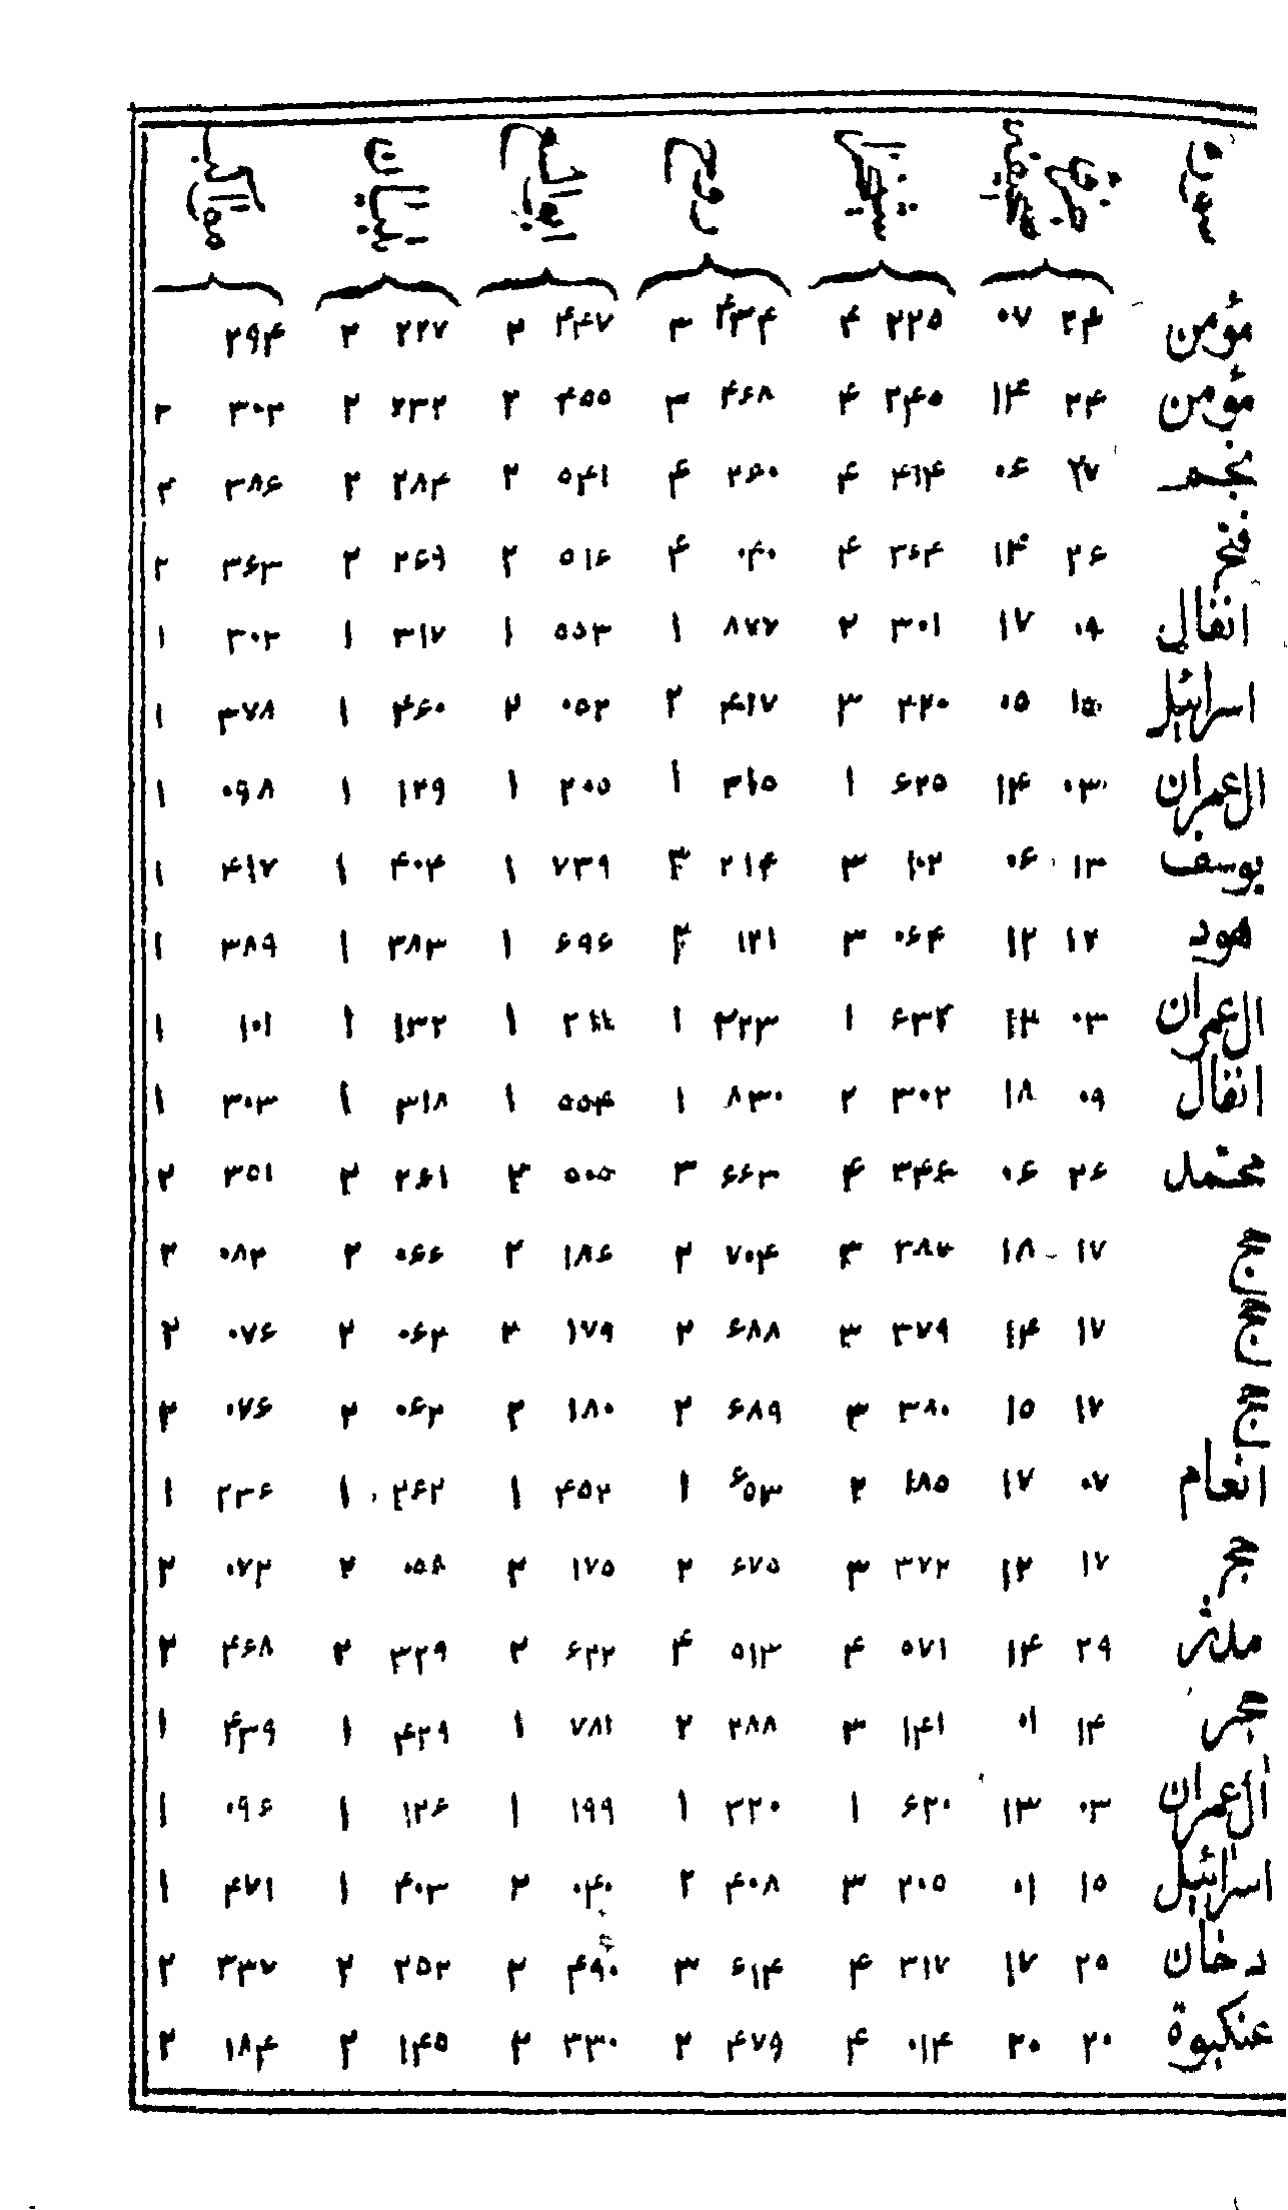 سوره
مؤمن ۲۴ ۰۷ ۲۲۵ ۴ ۴۳۴ ۳ ۴۴۷ ۲ ۲۲۷ ۲ ۲۹۴
مؤمن ۲۴ ۱۴ ۲۴۵ ۴ ۴۶۸ ۳ ۴۵۵ ۲ ۲۳۲ ۲ ۳۰۳ ۲
نجم ۲۷ ۰۶ ۴۱۴ ۴ ۲۶۰ ۴ ۵۴۱ ۲ ۲۸۴ ۲ ۳۸۶ ۲
فتح ۲۶ ۱۴ ۳۶۴ ۴ ۰۴۰ ۴ ۵۱۶ ۲ ۲۶۹ ۲ ۳۶۳ ۲
انفال ۰۹ ۱۷ ۳۰۱ ۲ ۸۲۲ ۱ ۵۵۳ ۱ ۳۱۷ ۱ ۳۰۲ ۱
اسرائیل ۱۵ ۰۵ ۲۲۰ ۳ ۴۱۷ ۲ ۰۵۲ ۲ ۴۶۰ ۱ ۳۷۸ ۱
ال عمران ۰۳ ۱۴ ۶۲۵ ۱ ۳۱۵ ۱ ۲۰۵ ۱ ۱۲۹ ۱ ۰۹۸ ۱
یوسف ۱۳ ۰۶ ۱۰۲ ۳ ۲۱۴ ۲ ۷۳۹ ۱ ۴۰۴ ۱ ۴۱۷ ۱
هود ۱۲ ۱۲ ۰۶۴ ۳ ۱۲۱ ۲ ۶۹۶ ۱ ۳۸۳ ۱ ۳۸۹ ۱
ال عمران ۰۳ ۱۳ ۶۳۲ ۱ ۳۲۳ ۱ ۱ ۱۳۲ ۱ ۱۰۱ ۱
انفال ۰۹ ۱۸ ۳۰۲ ۲ ۸۳۰ ۱ ۵۵۴ ۱ ۳۱۸ ۱ ۳۰۳ ۱
محمد ۲۶ ۰۶ ۳۴۶ ۴ ۶۶۳ ۳ ۵۰۵ ۲ ۲۶۱ ۲ ۳۵۱ ۲
حج ۱۷ ۱۸ ۳۸۷ ۳ ۷۰۴ ۲ ۱۸۶ ۲ ۰۶۶ ۲ ۰۸۲ ۲
حج ۱۷ ۱۴ ۳۷۹ ۳ ۶۸۸ ۲ ۱۷۹ ۲ ۰۶۲ ۲ ۰۷۶ ۲
حج ۱۷ ۱۵ ۳۸۰ ۳ ۶۸۹ ۲ ۱۸۰ ۲ ۰۶۲ ۲ ۰۷۶ ۲
انعام ۰۷ ۱۷ ۱۸۵ ۲ ۶۵۳ ۱ ۴۵۲ ۱ ۲۶۲ ۱ ۲۳۶ ۱
حجر ۱۷ ۱۲ ۳۷۲ ۳ ۶۷۵ ۲ ۱۷۵ ۲ ۰۵۸ ۲ ۰۷۲ ۲
مدثر ۲۹ ۱۴ ۵۷۱ ۴ ۵۱۳ ۴ ۶۲۲ ۲ ۳۲۹ ۲ ۴۶۸ ۲
حجر ۱۴ ۰۱ ۱۴۱ ۳ ۲۸۸ ۲ ۷۸۱ ۱ ۴۲۹ ۱ ۴۳۹ ۱
ال عمران ۰۳ ۱۳ ۶۲۰ ۱ ۲۲۰ ۱ ۱۹۹ ۱ ۱۲۶ ۱ ۰۹۶ ۱
اسرائیل ۱۵ ۰۱ ۲۰۵ ۳ ۴۰۸ ۲ ۰۴۰ ۲ ۴۰۳ ۱ ۴۷۱ ۱
دخان ۲۵ ۱۷ ۳۱۷ ۴ ۶۱۴ ۳ ۴۹۰ ۲ ۲۵۲ ۲ ۳۳۷ ۲
عنکبوة ۲۰ ۲۰ ۰۱۴ ۴ ۴۷۹ ۲ ۳۳۰ ۲ ۱۴۵ ۲ ۱۸۴ ۲